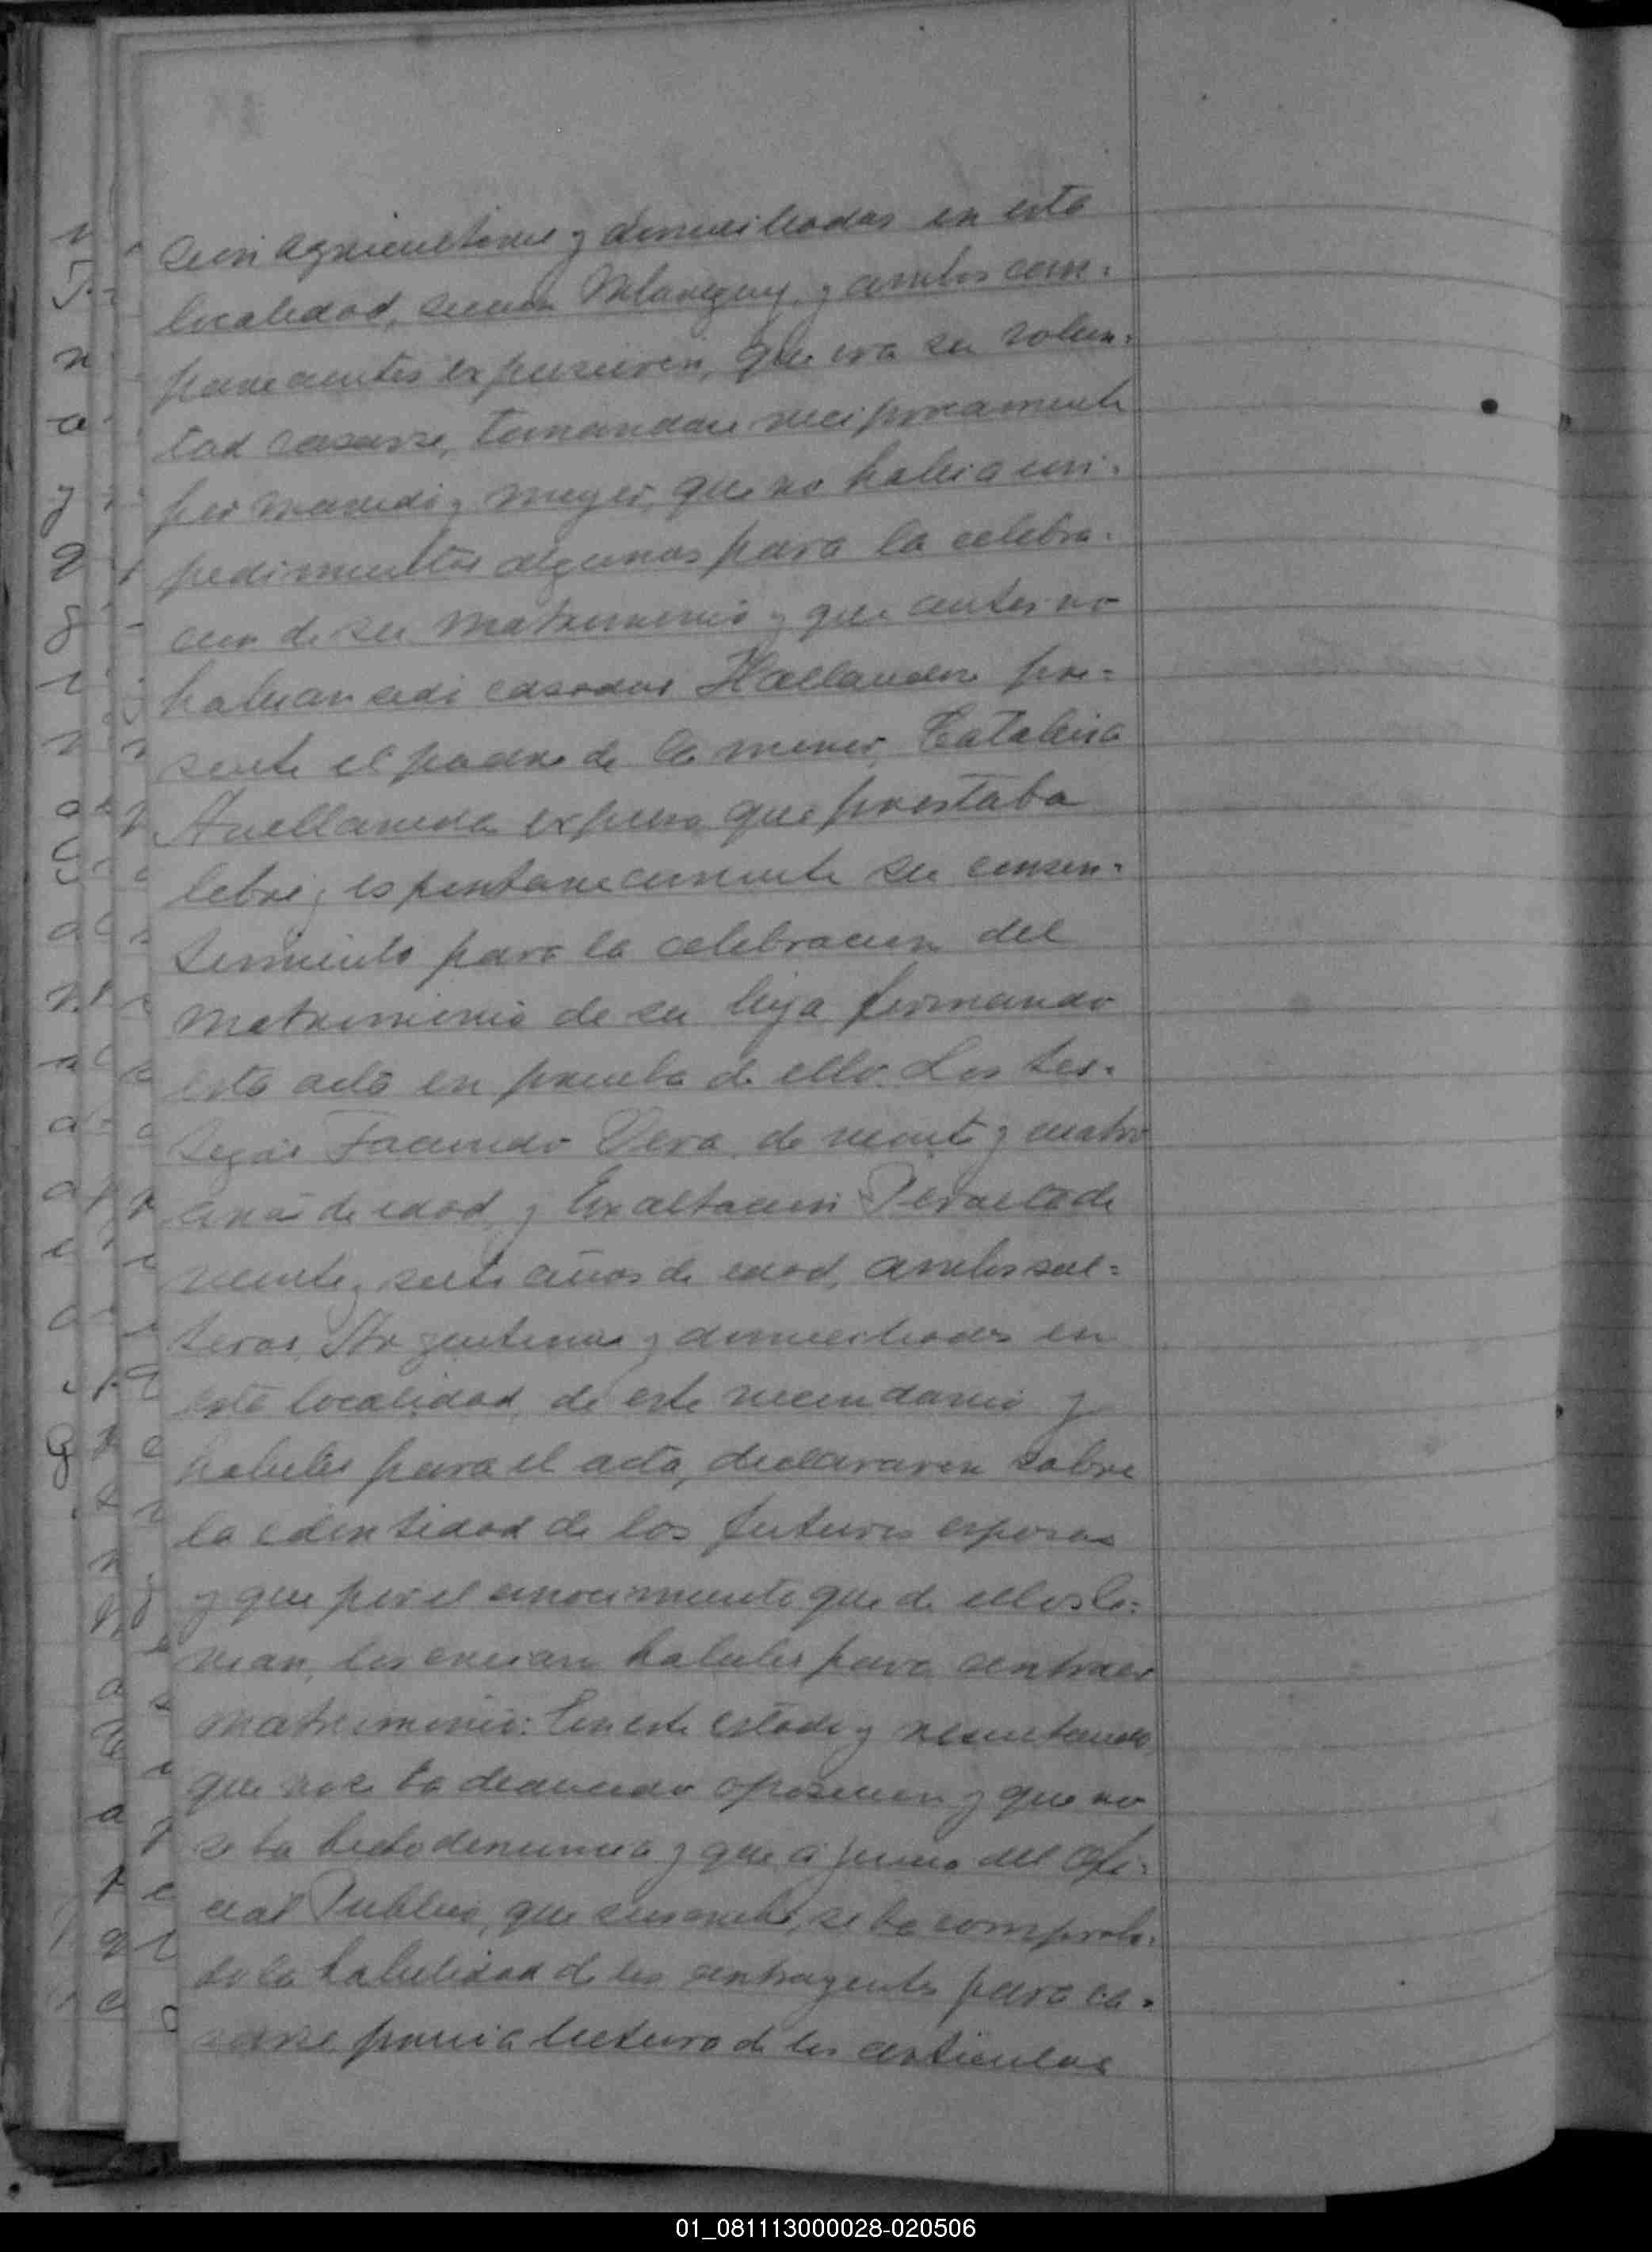 cion agricultores y domiciliados en esta
localidad, y ambos com-
parecientes expusieron, que era su volun-
tad casarse, tomandose reciprocamente
por marido y muger, que no habia im-
pedimentos algunos para la celebra-
cion de su matrimonio y que antes no
habian sido casados Hallandose pre-
sente el padre de la menor, Catalina
Avellaneda expuso que prestaba
libre y espontaneamente su consen-
timiento para la celebracion del
matrimonio de su hija firmando
esta acta en prueba de ello. Los tes-
tigos Facundo Vera, de veinte y cuatro
años de edad, y Exaltacion Peralta de
veinte y siete años de edad, ambos sol-
teros, Argentinos y domiciliados en
esta localidad, de este vecindario y
habiles para el acto, declararon sobre
la identidad de los futuros esposos
y que por el conocimiento que de ellos te-
nian, los creian habiles para contraer
matrimonio: En este estado y resultando
que no se ha deducido oposicion y que no
se ha hecho denuncia y que a juicio del Ofi-
cial Publico, que suscribe, se ha comproba-
do la habilidad de los contrayentes para ca-
sarse previa lectura de los articulos
01_081113000028-020506